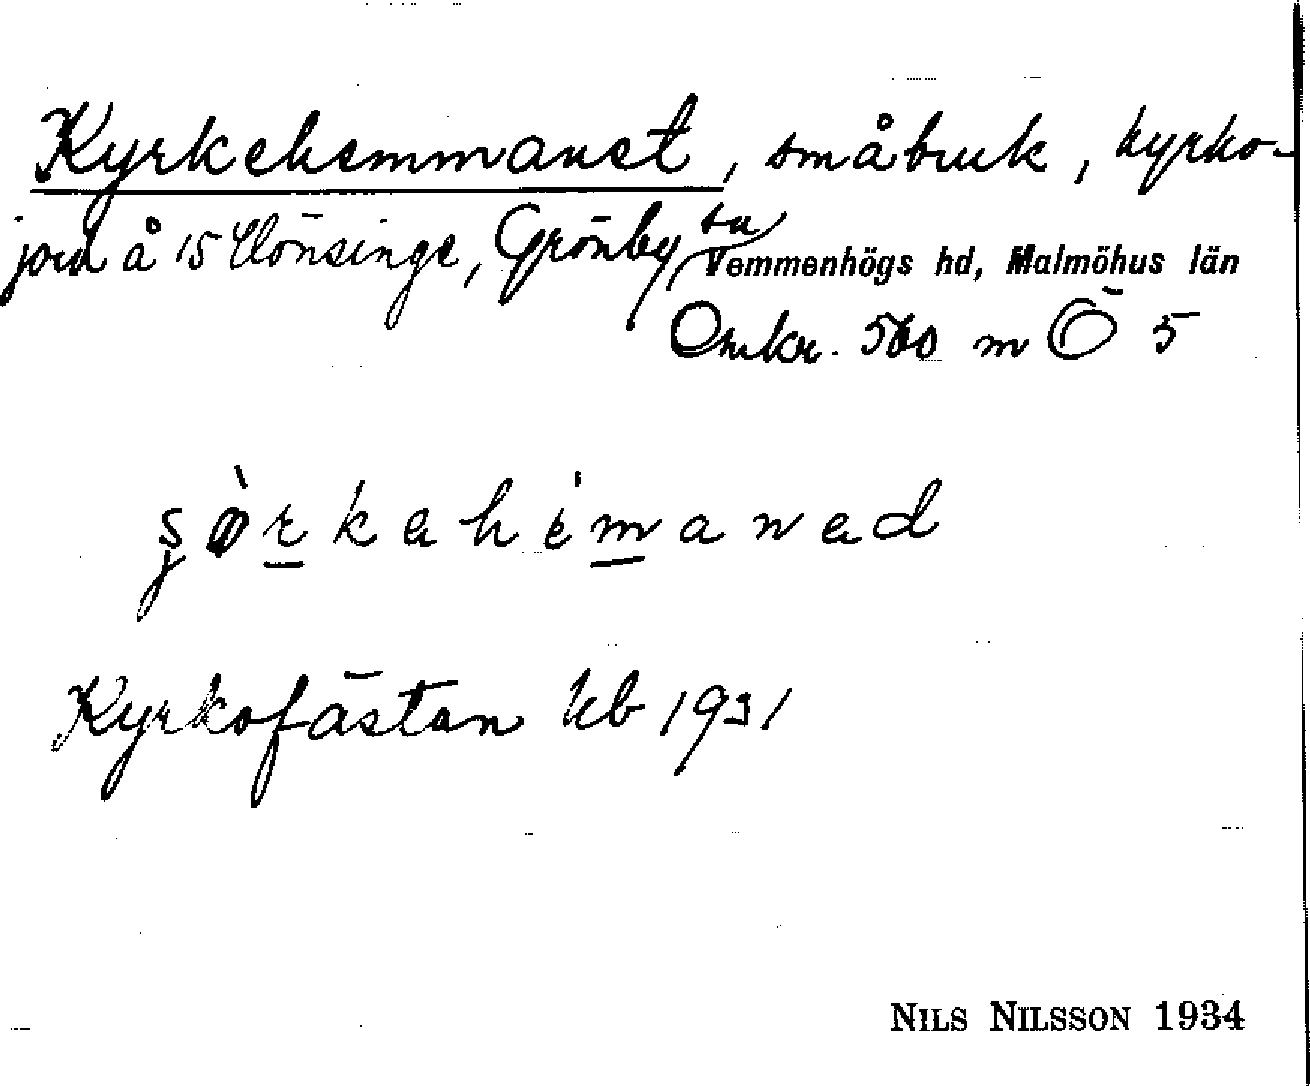 Kyrkehemmanet, småbruk, kyrko-
jord å 15 Önsinge, Grönby sn
Vemmenhögs hd, Malmöhus län
Omkr. 500 m Ö 5
Kyrkofästan kb 1931
NILS NILSSON 1934